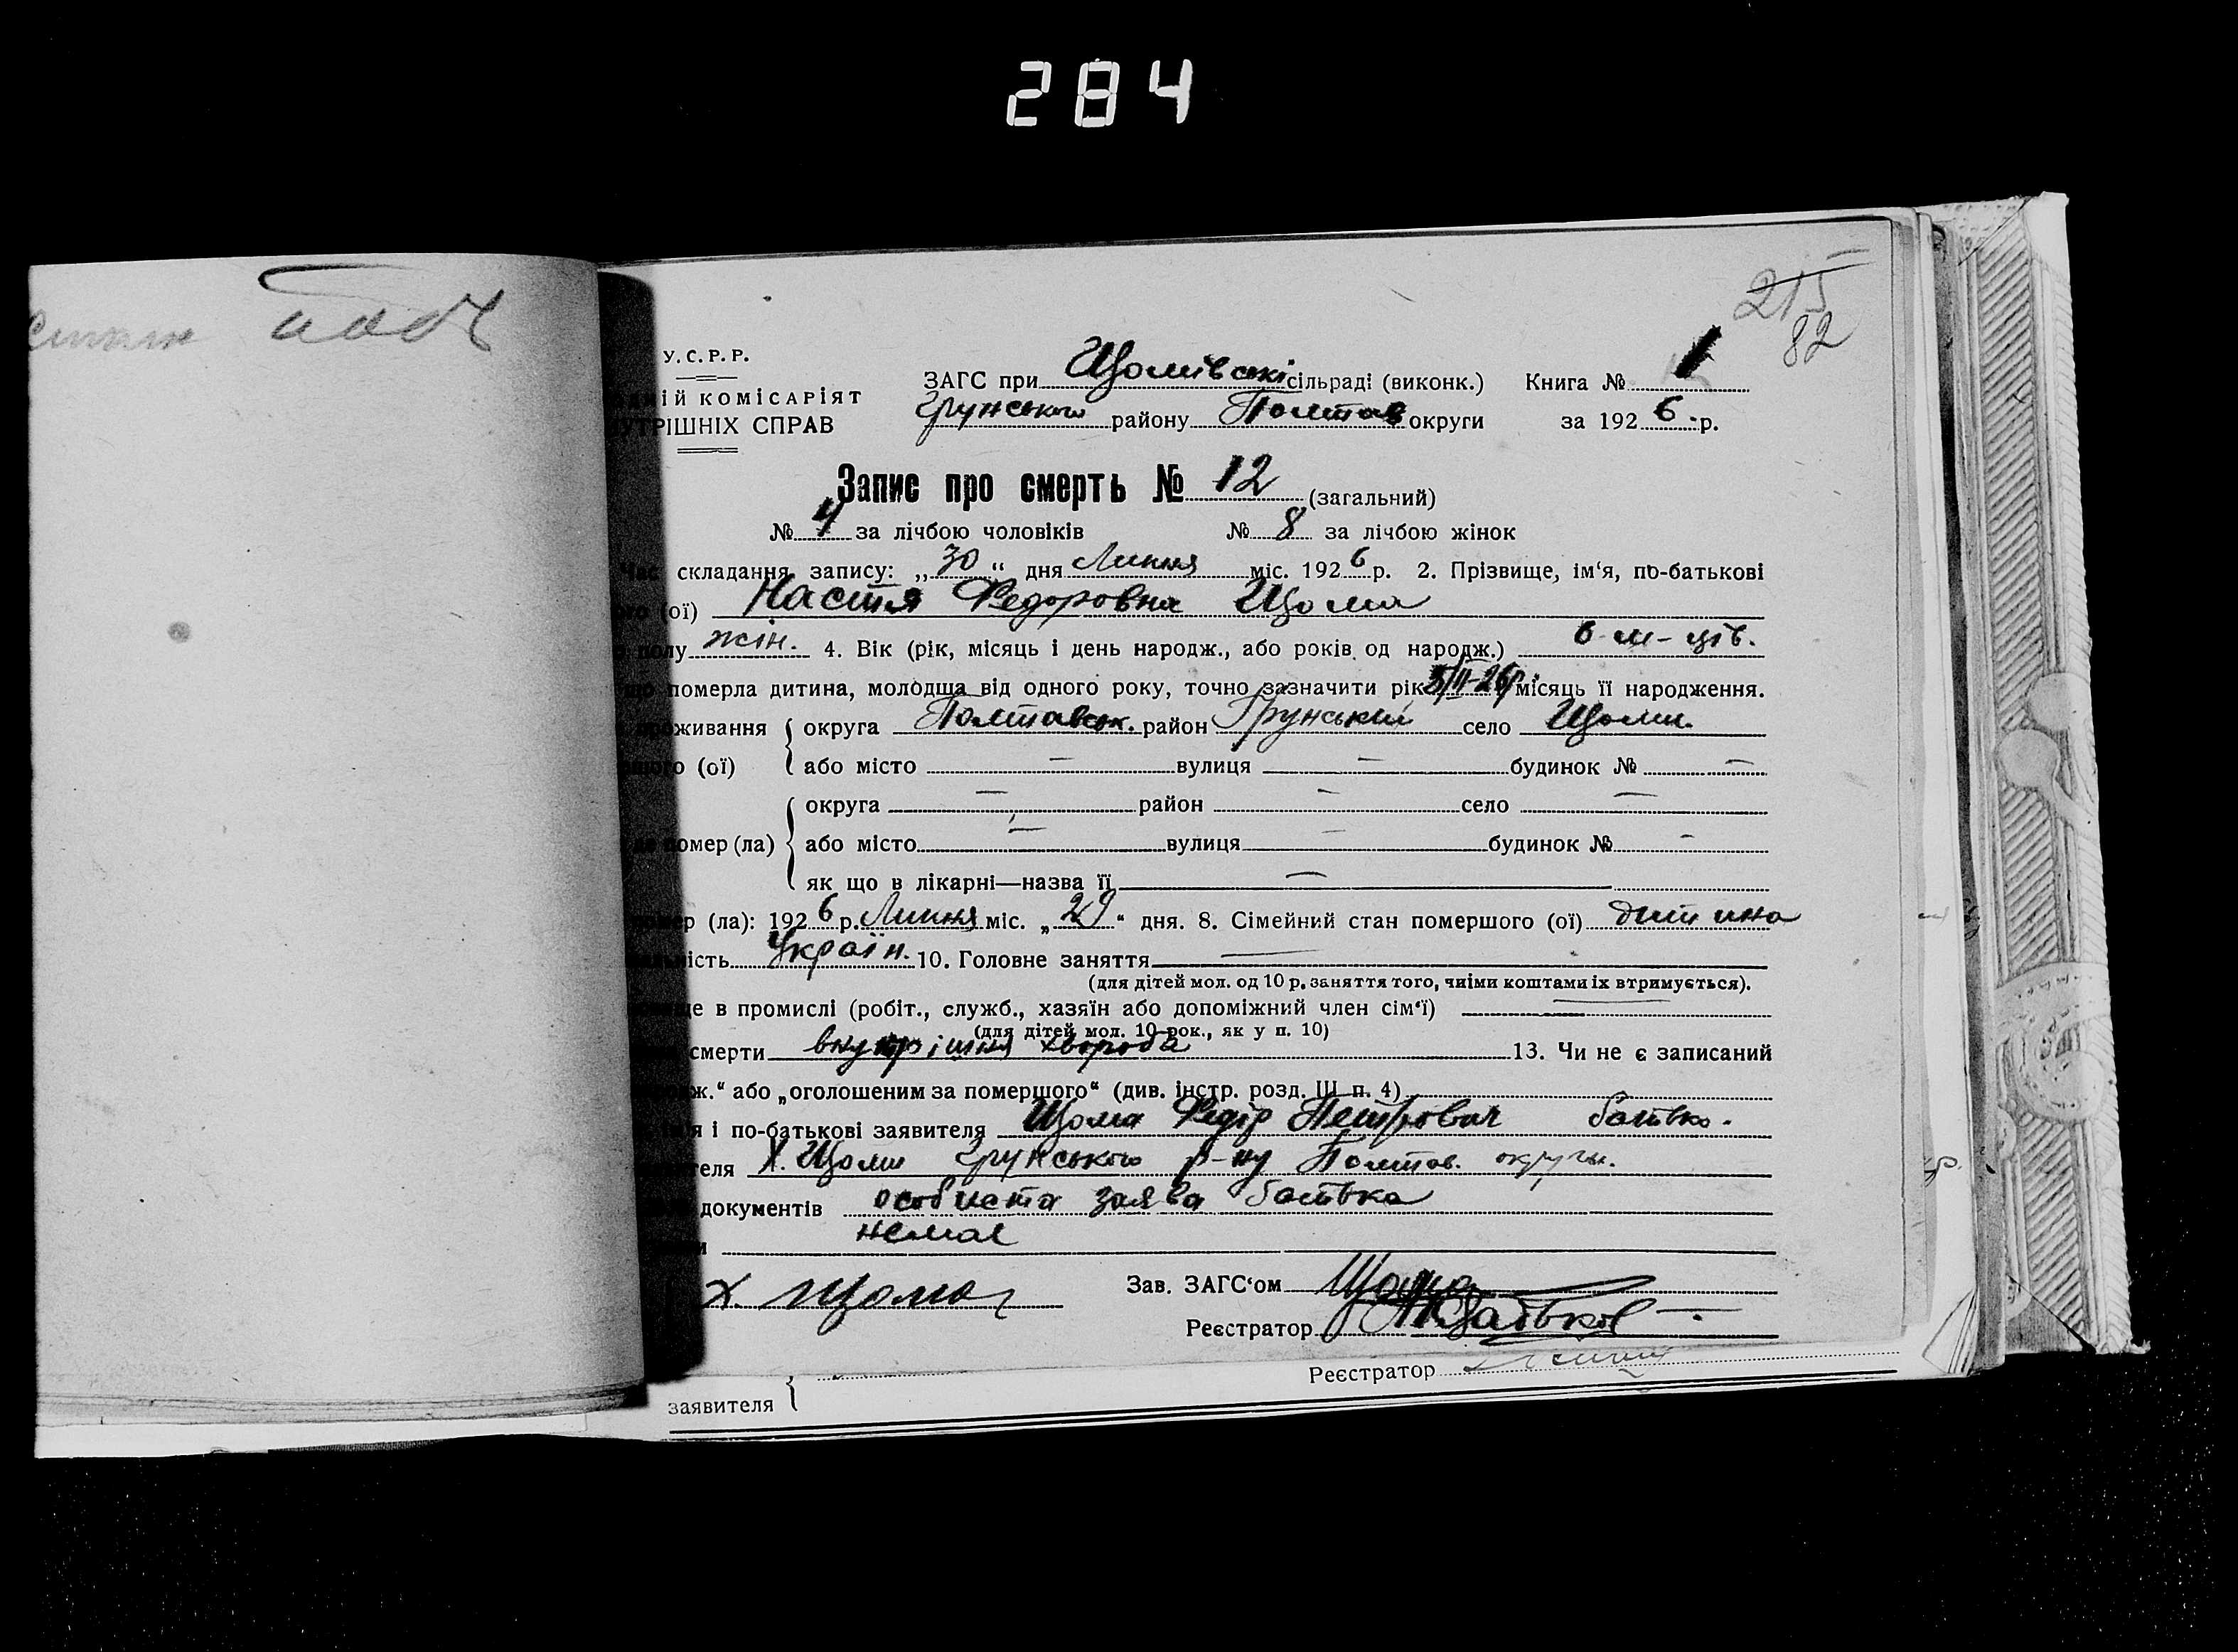 284
215
82
У.С.Р.Р.
ЗАГС при Щомівські сільраді (виконк.) Книга № 1
ІЙ КОМІСАРІЯТ
Грунського району Полтав округи за 1926 р.
УТРІШНІХ СПРАВ
Запис про смерть № 12 (загальний)
№ 4 за лічбою чоловіків № 8 за лічбою жінок
Час складання запису: „30“ дня Липня міс. 1926 р. 2. Прізвище, ім‘я, по-батькові
(ої) Настя Федоровна Щома
полу жін. 4. Вік (рік, місяць і день народж., або років од народж.) 6 м-ців.
що померла дитина, молодша від одного року, точно зазначити рік місяць її народження.
проживання округа Полтавськ. район Грунський село Щоми.
(ої) або місто — вулиця — будинок № —
округа — район — село —
де помер (ла) або місто — вулиця — будинок № —
як що в лікарні—назва її —
(ла): 1926 р. Липня міс. „29“ дня. 8. Сімейний стан помершого (ої) дитина
ність Україн. 10. Головне заняття —
(для дітей мол. од 10 р. заняття того, чиїми коштами їх втримується).
ще в промислі (робіт., служб., хазяїн або допоміжний член сім‘ї) —
(для дітей мол. 10 рок., як у п. 10)
смерти внутрішня хвороба 13. Чи не є записаний
ж.“ або „оголошеним за помершого“ (див. інстр. розд. III п. 4)
я і по-батькові заявителя Щома Федір Петрович батько.
теля х. Щоми Грунського р-ну Полтав. округи.
документів особиста заява батька
немає
х. Щома Зав. ЗАГС‘ом Щома
Реєстратор
Реєстратор
заявителя